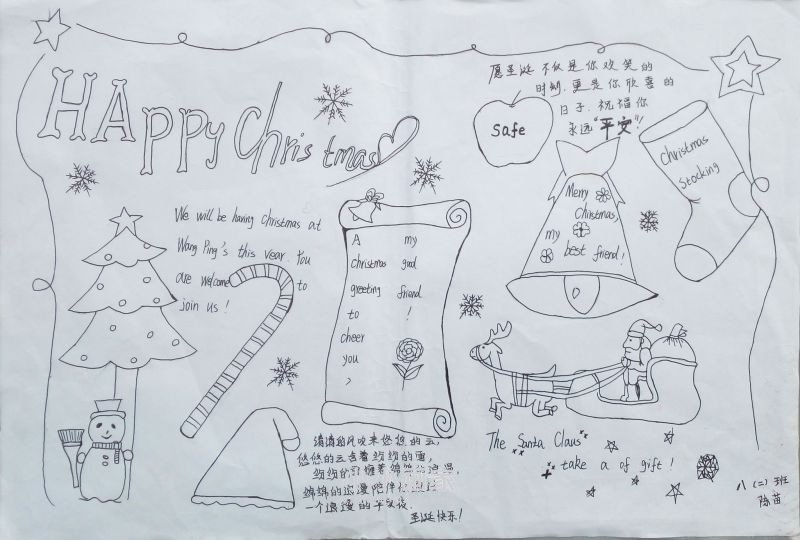 Happy Christmas
愿圣诞不仅是你欢笑的
时刻,更是你欣喜的
日子.祝福你
永远"平安"!
Safe
Christmas
Stocking
We will be having christmas at
Wang Ping's this year. You
are welcome to
join us!
A my
christmas good
greeting friend
to !
cheer
you
,
Merry
Christmas,
my
best friend!
The Santa Claus
take a of gift!
清清的风吹来悠悠的云,
悠悠的云含着绵绵的
的浪漫陪伴
一个浪漫的平安夜.
圣诞快乐!
八(二)班
陈苗